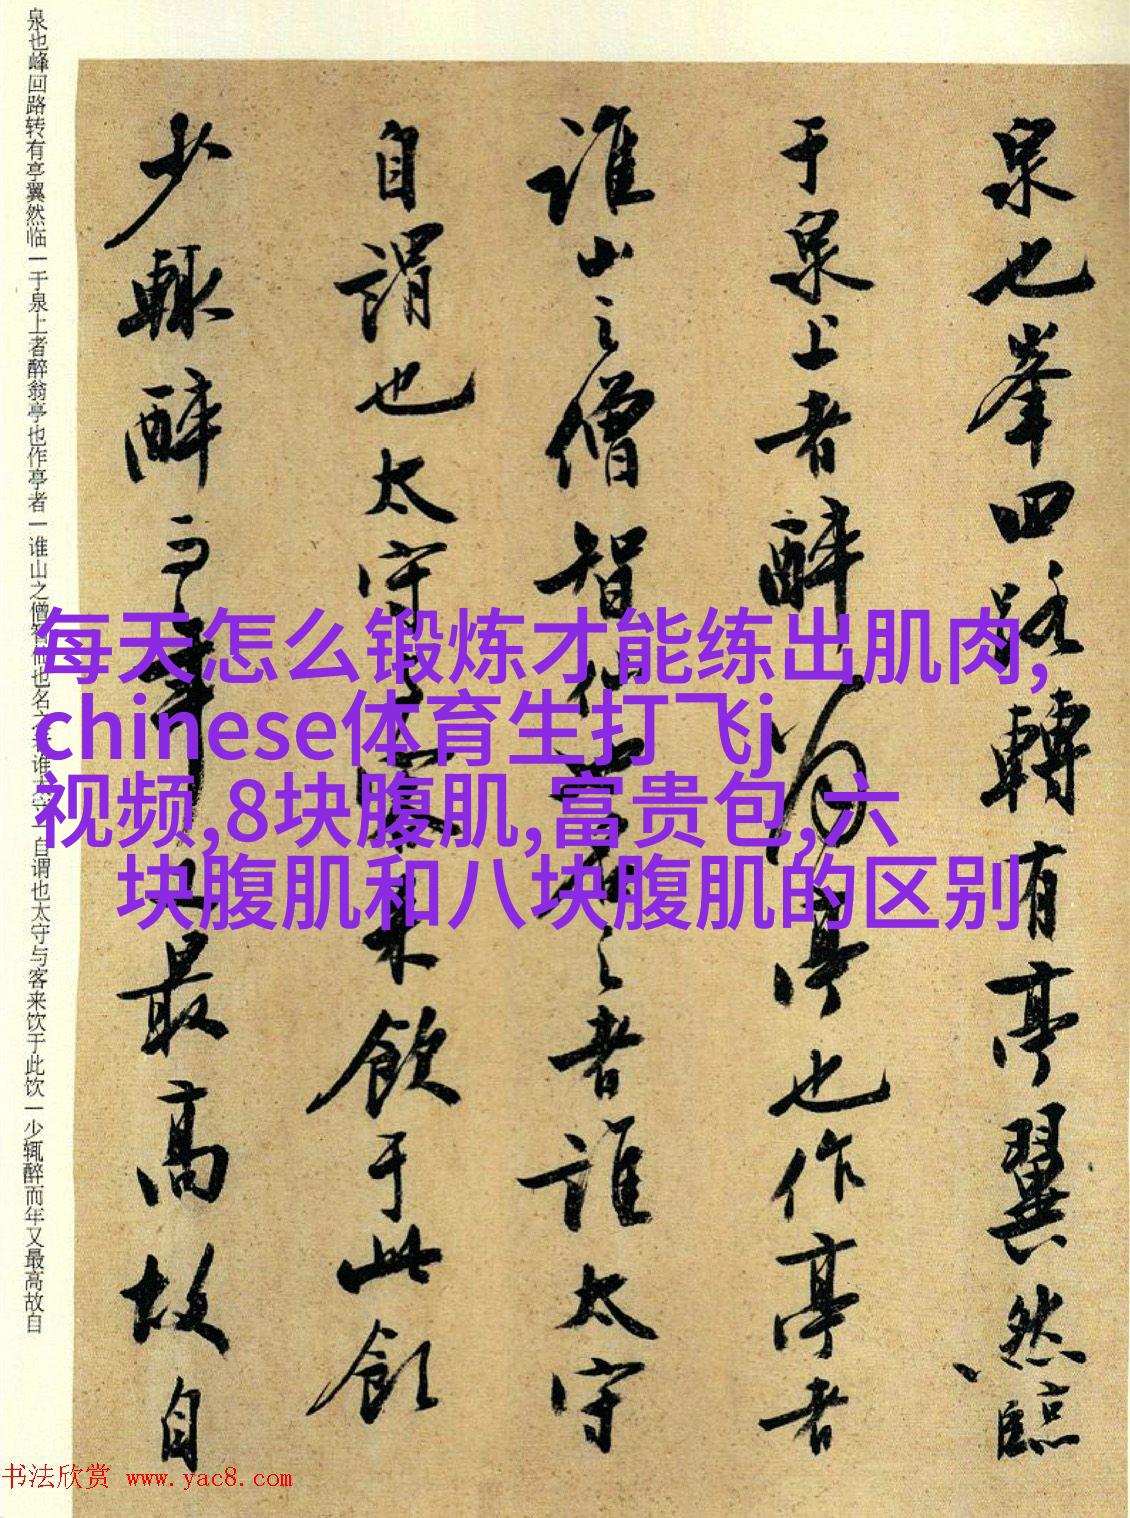 泉也峰回路转有亭翼然临一于泉上者醉翁亭也作亭者一谁山之僧智仙也名之者谁太守一自谓也太守与客来饮于此饮一少辄醉而年又最高故自
泉也峯回路轉有亭翼然臨
于泉上者醉翁亭也作亭者
誰山之僧智仙也名之者誰太守
自謂也太守與客來飲于此飲
少輒醉而年又最高故自
每天怎么锻炼才能练出肌肉,
chinese体育生打飞j
视频,8块腹肌,富贵包,六
块腹肌和八块腹肌的区别
书法欣赏 www.yac8.com